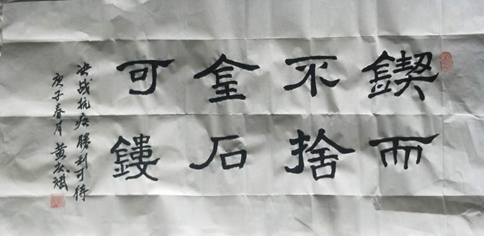 鍥而
不捨
金石
可鏤
决战抗疫勝利可待
庚子春月黄宏斌